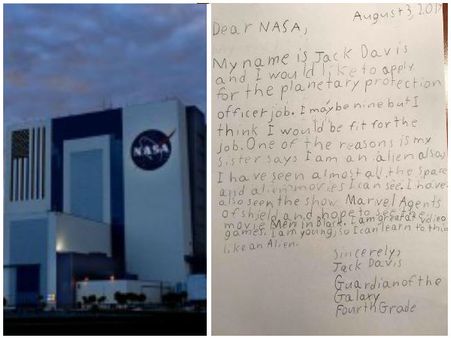 NASA
August 3, 2017
Dear NASA,
My name is Jack Davis
and I would like to apply
for the planetary protection
officer job. I may be nine but I
think I would be fit for the
job. One of the reasons is my
sister says I am an alien also
I have seen almost all the space
and alien movies I can see. I have
also seen the show Marvel Agents
of Shield and hope to see the
movie Men in Black. I am great at video
games. I am young, so I can learn to think
like an Alien.
Sincerely,
Jack Davis
Guardian of the
Galaxy
Fourth Grade